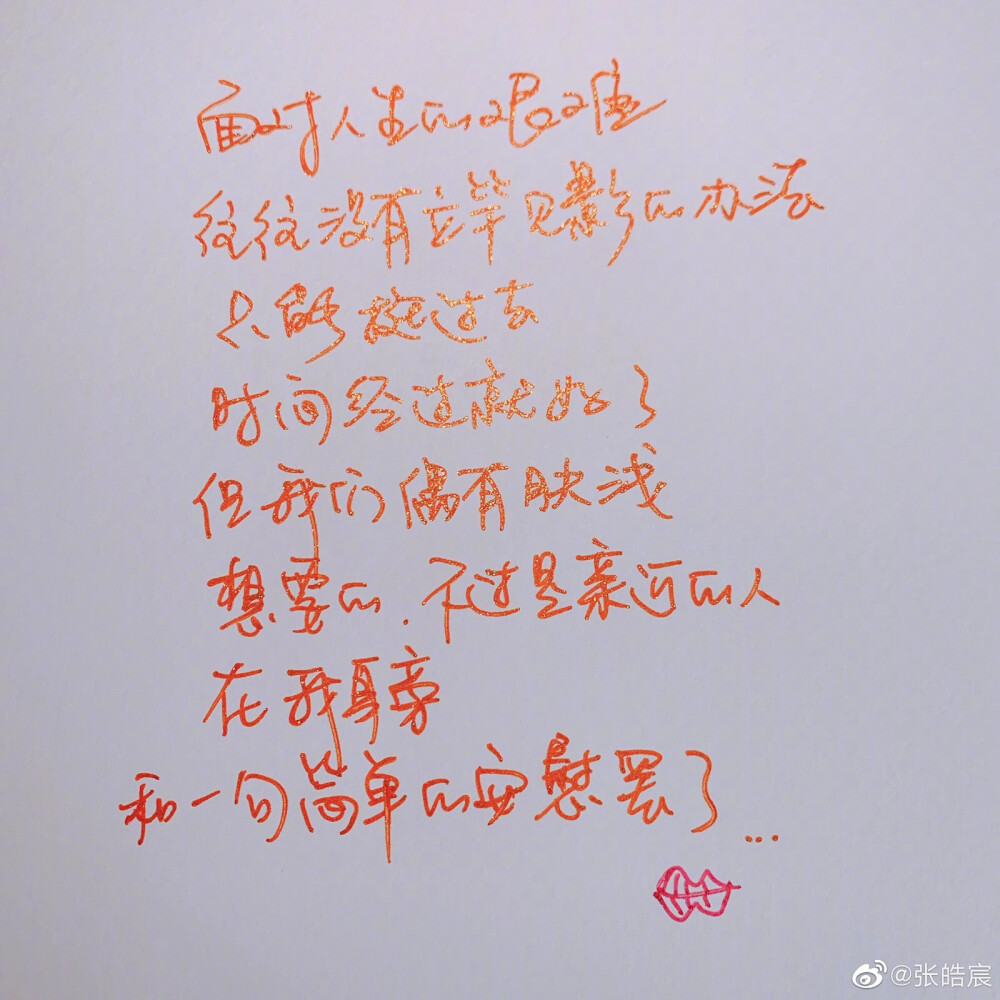 面对人生的艰难
往往没有立竿见影的办法
只能过去
时间经过就好了
但我们偶有肤浅
想要的.不过是亲近的人
在我身旁
和一句简单的安慰罢了...
@张皓宸